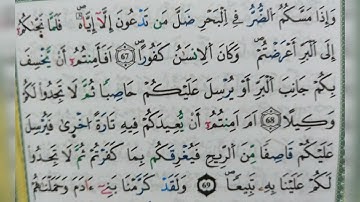 وَإِذَا مَسَّكُمُ الضُّرُّ فِي الْبَحْرِ ضَلَّ مَن تَدْعُونَ إِلَّا إِيَّاهُ فَلَمَّا نَجَّىٰكُمْ
إِلَى الْبَرِّ أَعْرَضْتُمْ وَكَانَ الْإِنسَٰنُ كَفُورًا ٦٧ أَفَأَمِنتُمْ أَن يَخْسِفَ
بِكُمْ جَانِبَ الْبَرِّ أَوْ يُرْسِلَ عَلَيْكُمْ حَاصِبًا ثُمَّ لَا تَجِدُوا لَكُمْ
وَكِيلًا ٦٨ أَمْ أَمِنتُمْ أَن يُعِيدَكُمْ فِيهِ تَارَةً أُخْرَىٰ فَيُرْسِلَ
عَلَيْكُمْ قَاصِفًا مِّنَ الرِّيحِ فَيُغْرِقَكُم بِمَا كَفَرْتُمْ ثُمَّ لَا تَجِدُوا
لَكُمْ عَلَيْنَا بِهِ تَبِيعًا ٦٩ وَلَقَدْ كَرَّمْنَا بَنِي ءَادَمَ وَحَمَلْنَٰهُمْ